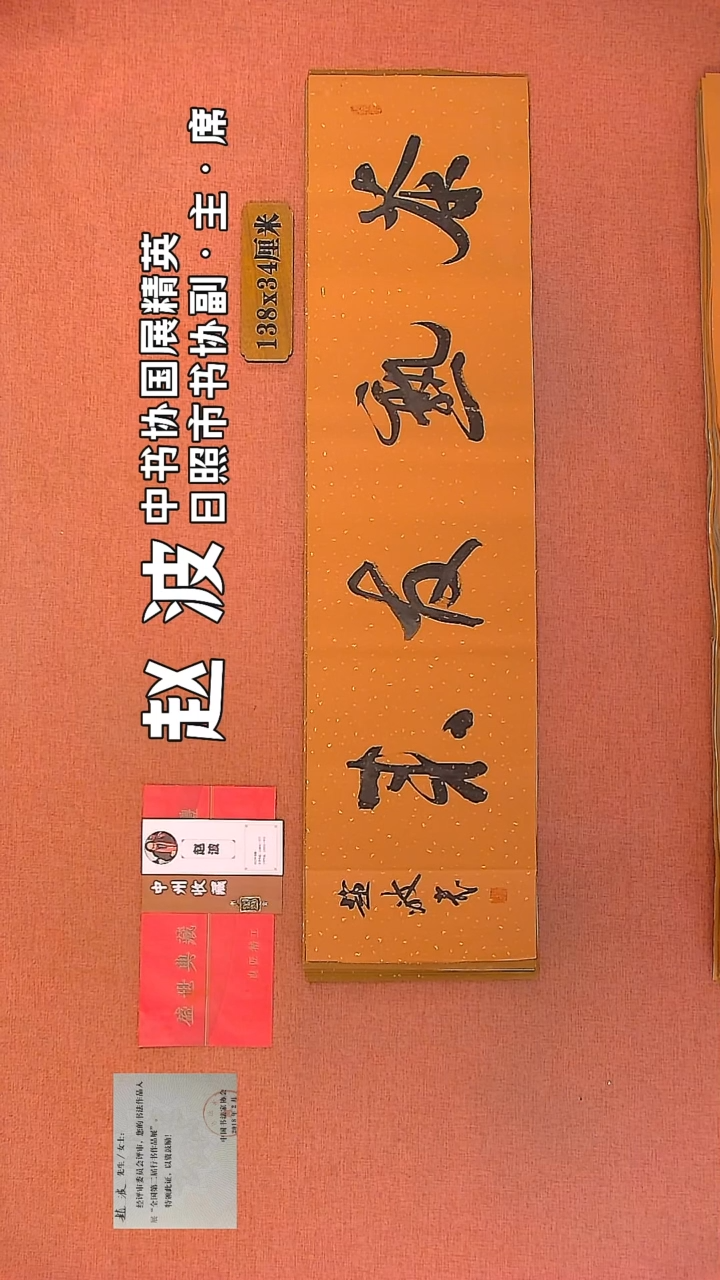 中书协国展精英
赵波 日照市书协副·主·席
138x34厘米
茶熟友来
趙波书
赵波
中州收藏
盛世典藏
赵波 先生／女士：
经评审委员会评审，您的书法作品入
展“全国第二届行书作品展”。
特颁此证，以资鼓励！
中国书法家协会
2018年2月